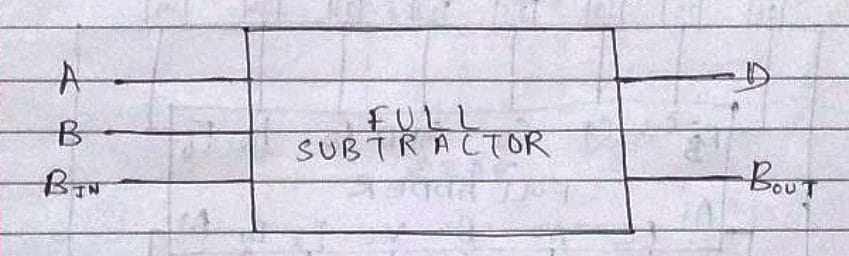 A
B
B_IN
FULL
SUBTRACTOR
D
B_OUT